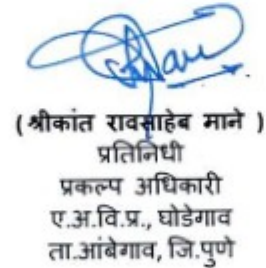 (श्रीकांत रावसाहेब माने )
प्रतिनिधी
प्रकल्प अधिकारी
ए.अ.वि.प्र., घोडेगाव
ता.आंबेगाव, जि.पुणे